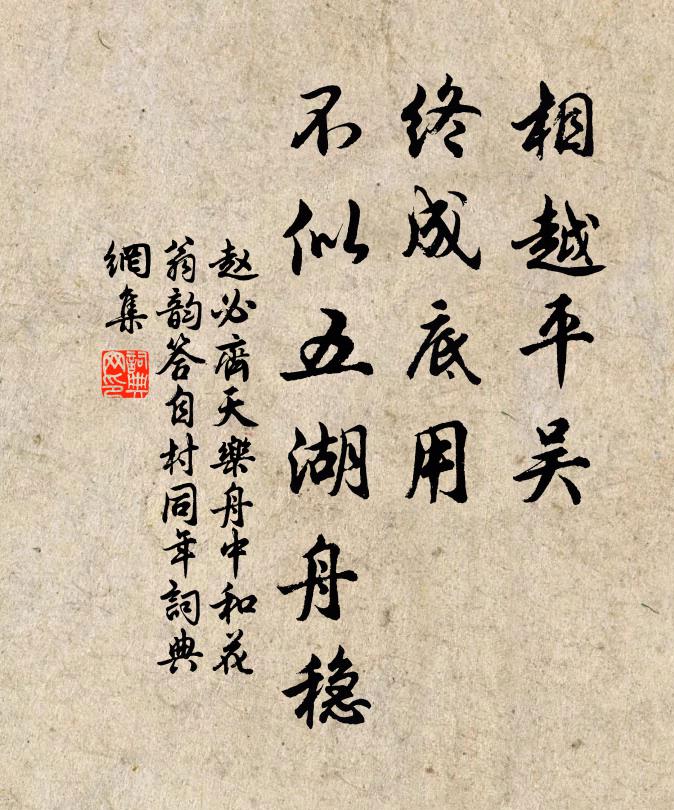 相越平吴
终成底用
不似五湖舟稳
赵必齐天樂舟中和花
翁韵答自村同年詞典
網集
詞典
网印